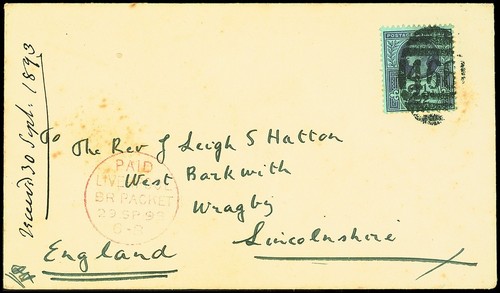 30 Sept. 1893
To The Rev J Leigh S Hatton
West Barkwith
Wragby
Lincolnshire
England
PAID
LIVERPOOL
BR PACKET
29 SP 93
POSTAGE